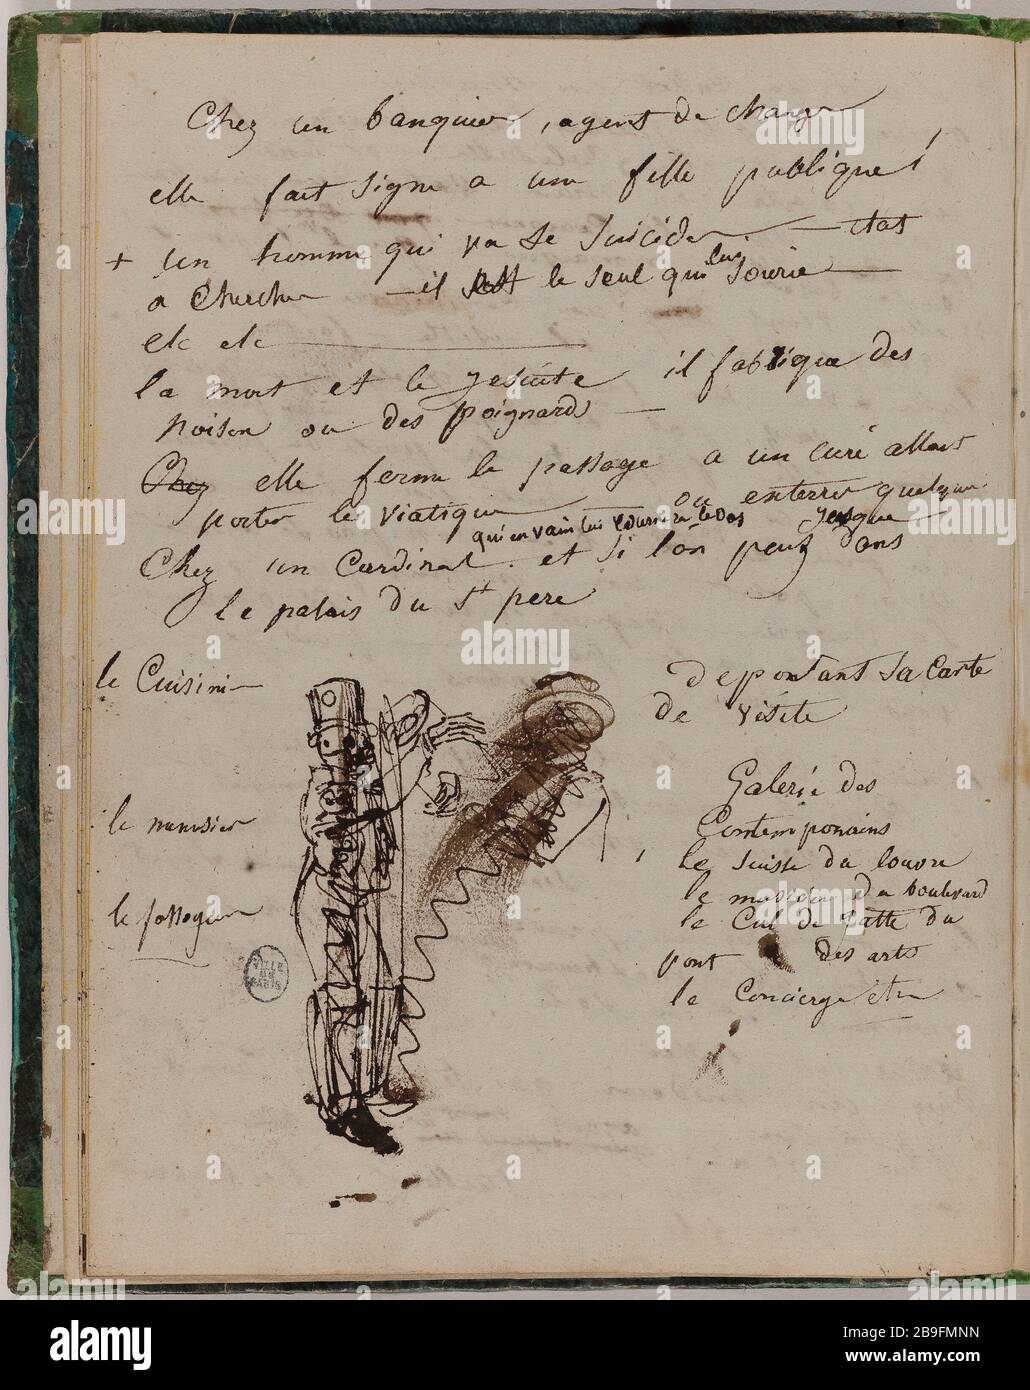 Chez un banquier, agent de change
elle fait signe a une fille publique
+ un homme qui va se suicider — etat
a chercher — il est le seul qui lui sourie —
etc etc
la mort et le jesuite il fabrique des
poison ou des poignard —
Chez elle ferme le passage a un curé allant
porter le viatique ou enterrer quelqu'un
qui en vain lui tourne le dos jusque
Chez un Cardinal. et si l'on peut dans
le palais du St pere
le Cuisinier
deposant sa carte
de visite
Galerie des
Contemporains
le menuisier
le Suisse du louvre
le musicien du boulevard
le fossoyeur
le Cul de Jatte du
pont des arts
le Concierge etc
VILLE
DE
PARIS
alamy
alamy
Image ID: 2B9FMNN
www.alamy.com